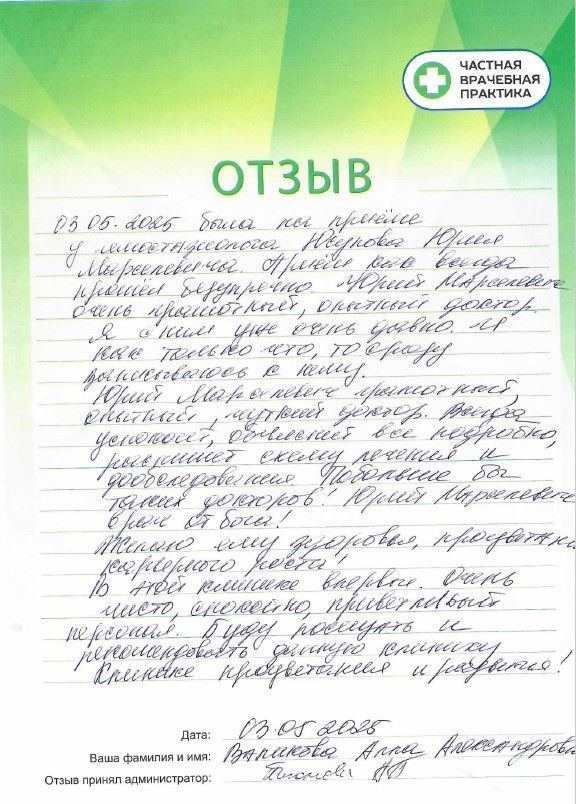 ЧАСТНАЯ
ВРАЧЕБНАЯ
ПРАКТИКА
ОТЗЫВ
03 05. 2025 была на приёме
у Юсупова Юрия
Марселевича. Приём как всегда
прошёл безупречно. Юрий Марселевич
очень грамотный, опытный доктор.
Я с ним уже очень давно. И
как только что, то сразу
записываюсь к нему.
Юрий Марселевич грамотный,
опытный, чуткий доктор. Всегда
успокоит, объяснит все подробно,
распишет схему лечения и
дообследования. Побольше бы
таких докторов! Юрий Марселевич
врач от бога!
Желаю ему здоровья, процветания
карьерного роста!
В этой клинике впервые. Очень
чисто, спокойно, приветливый
персонал. Буду посещать и
рекомендовать данную клинику
Клинике процветания и развития!
Дата: 03.05 2025
Ваша фамилия и имя: Алла Александровна
Отзыв принял администратор: